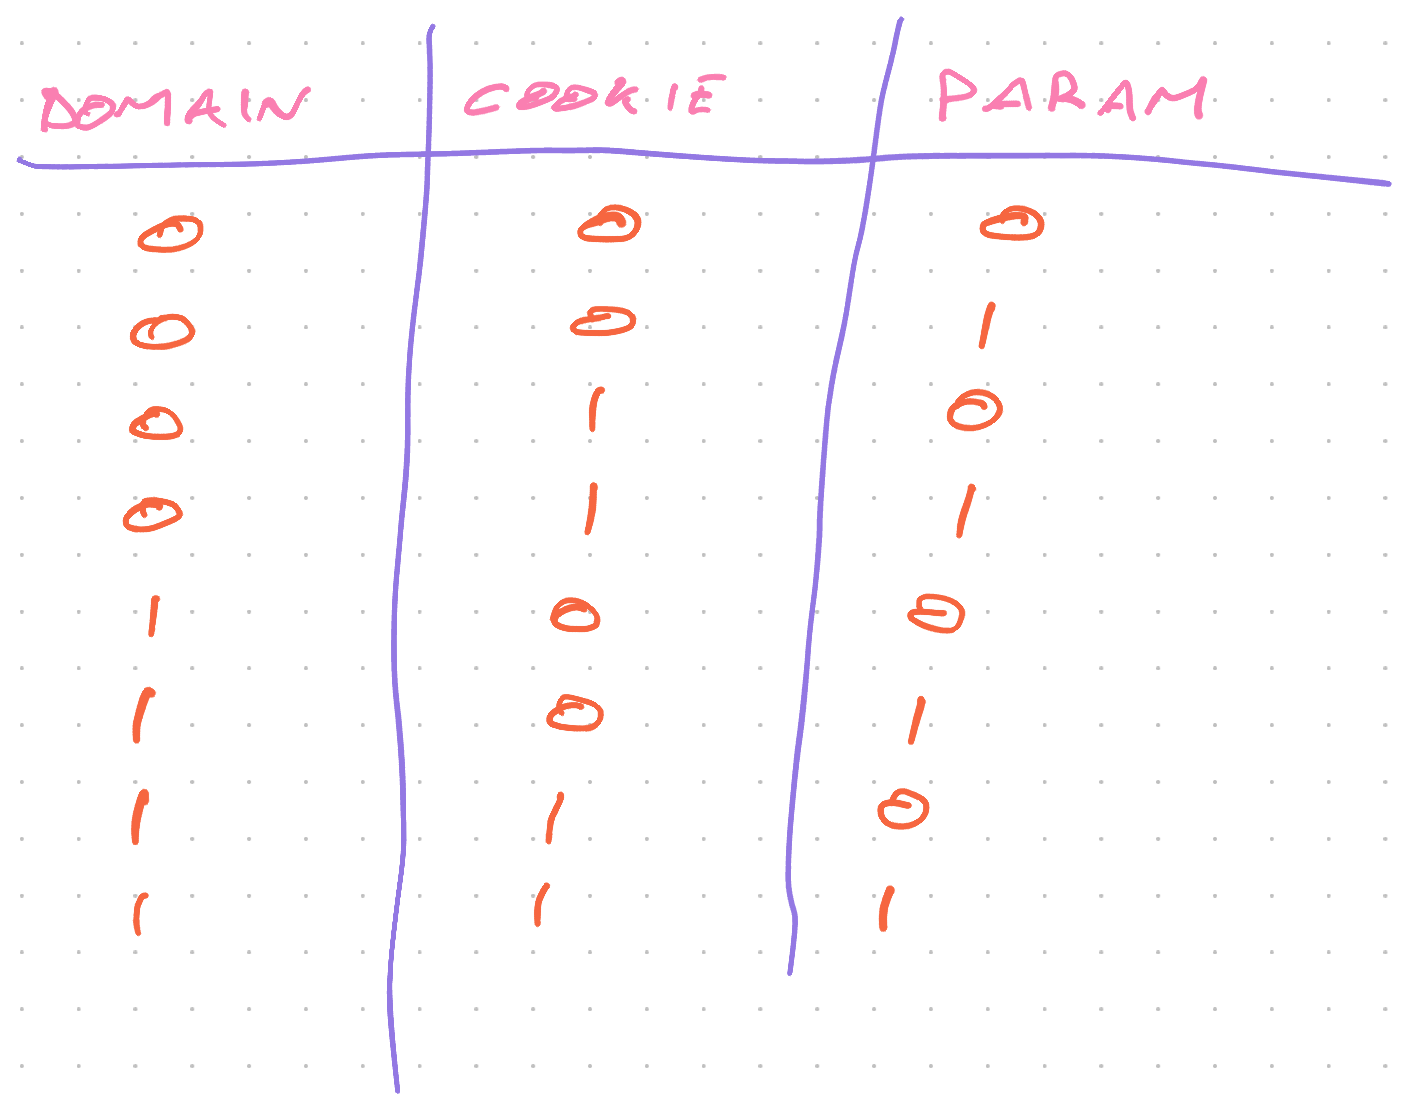 DOMAIN COOKIE PARAM
0 0 0
0 0 1
0 1 0
0 1 1
1 0 0
1 0 1
1 1 0
1 1 1